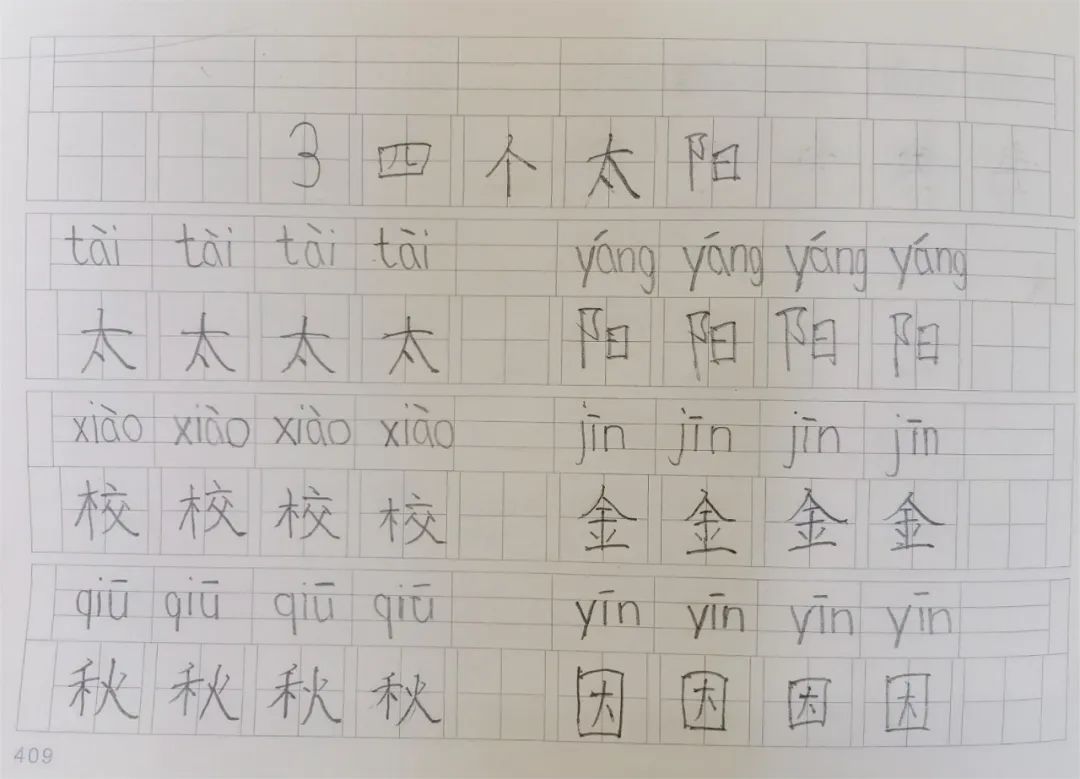 3 四个太阳
tài tài tài tài yáng yáng yáng yáng
太 太 太 太 阳 阳 阳 阳
xiào xiào xiào xiào jīn jīn jīn jīn
校 校 校 校 金 金 金 金
qiū qiū qiū qiū yīn yīn yīn yīn
秋 秋 秋 秋 因 因 因 因
409